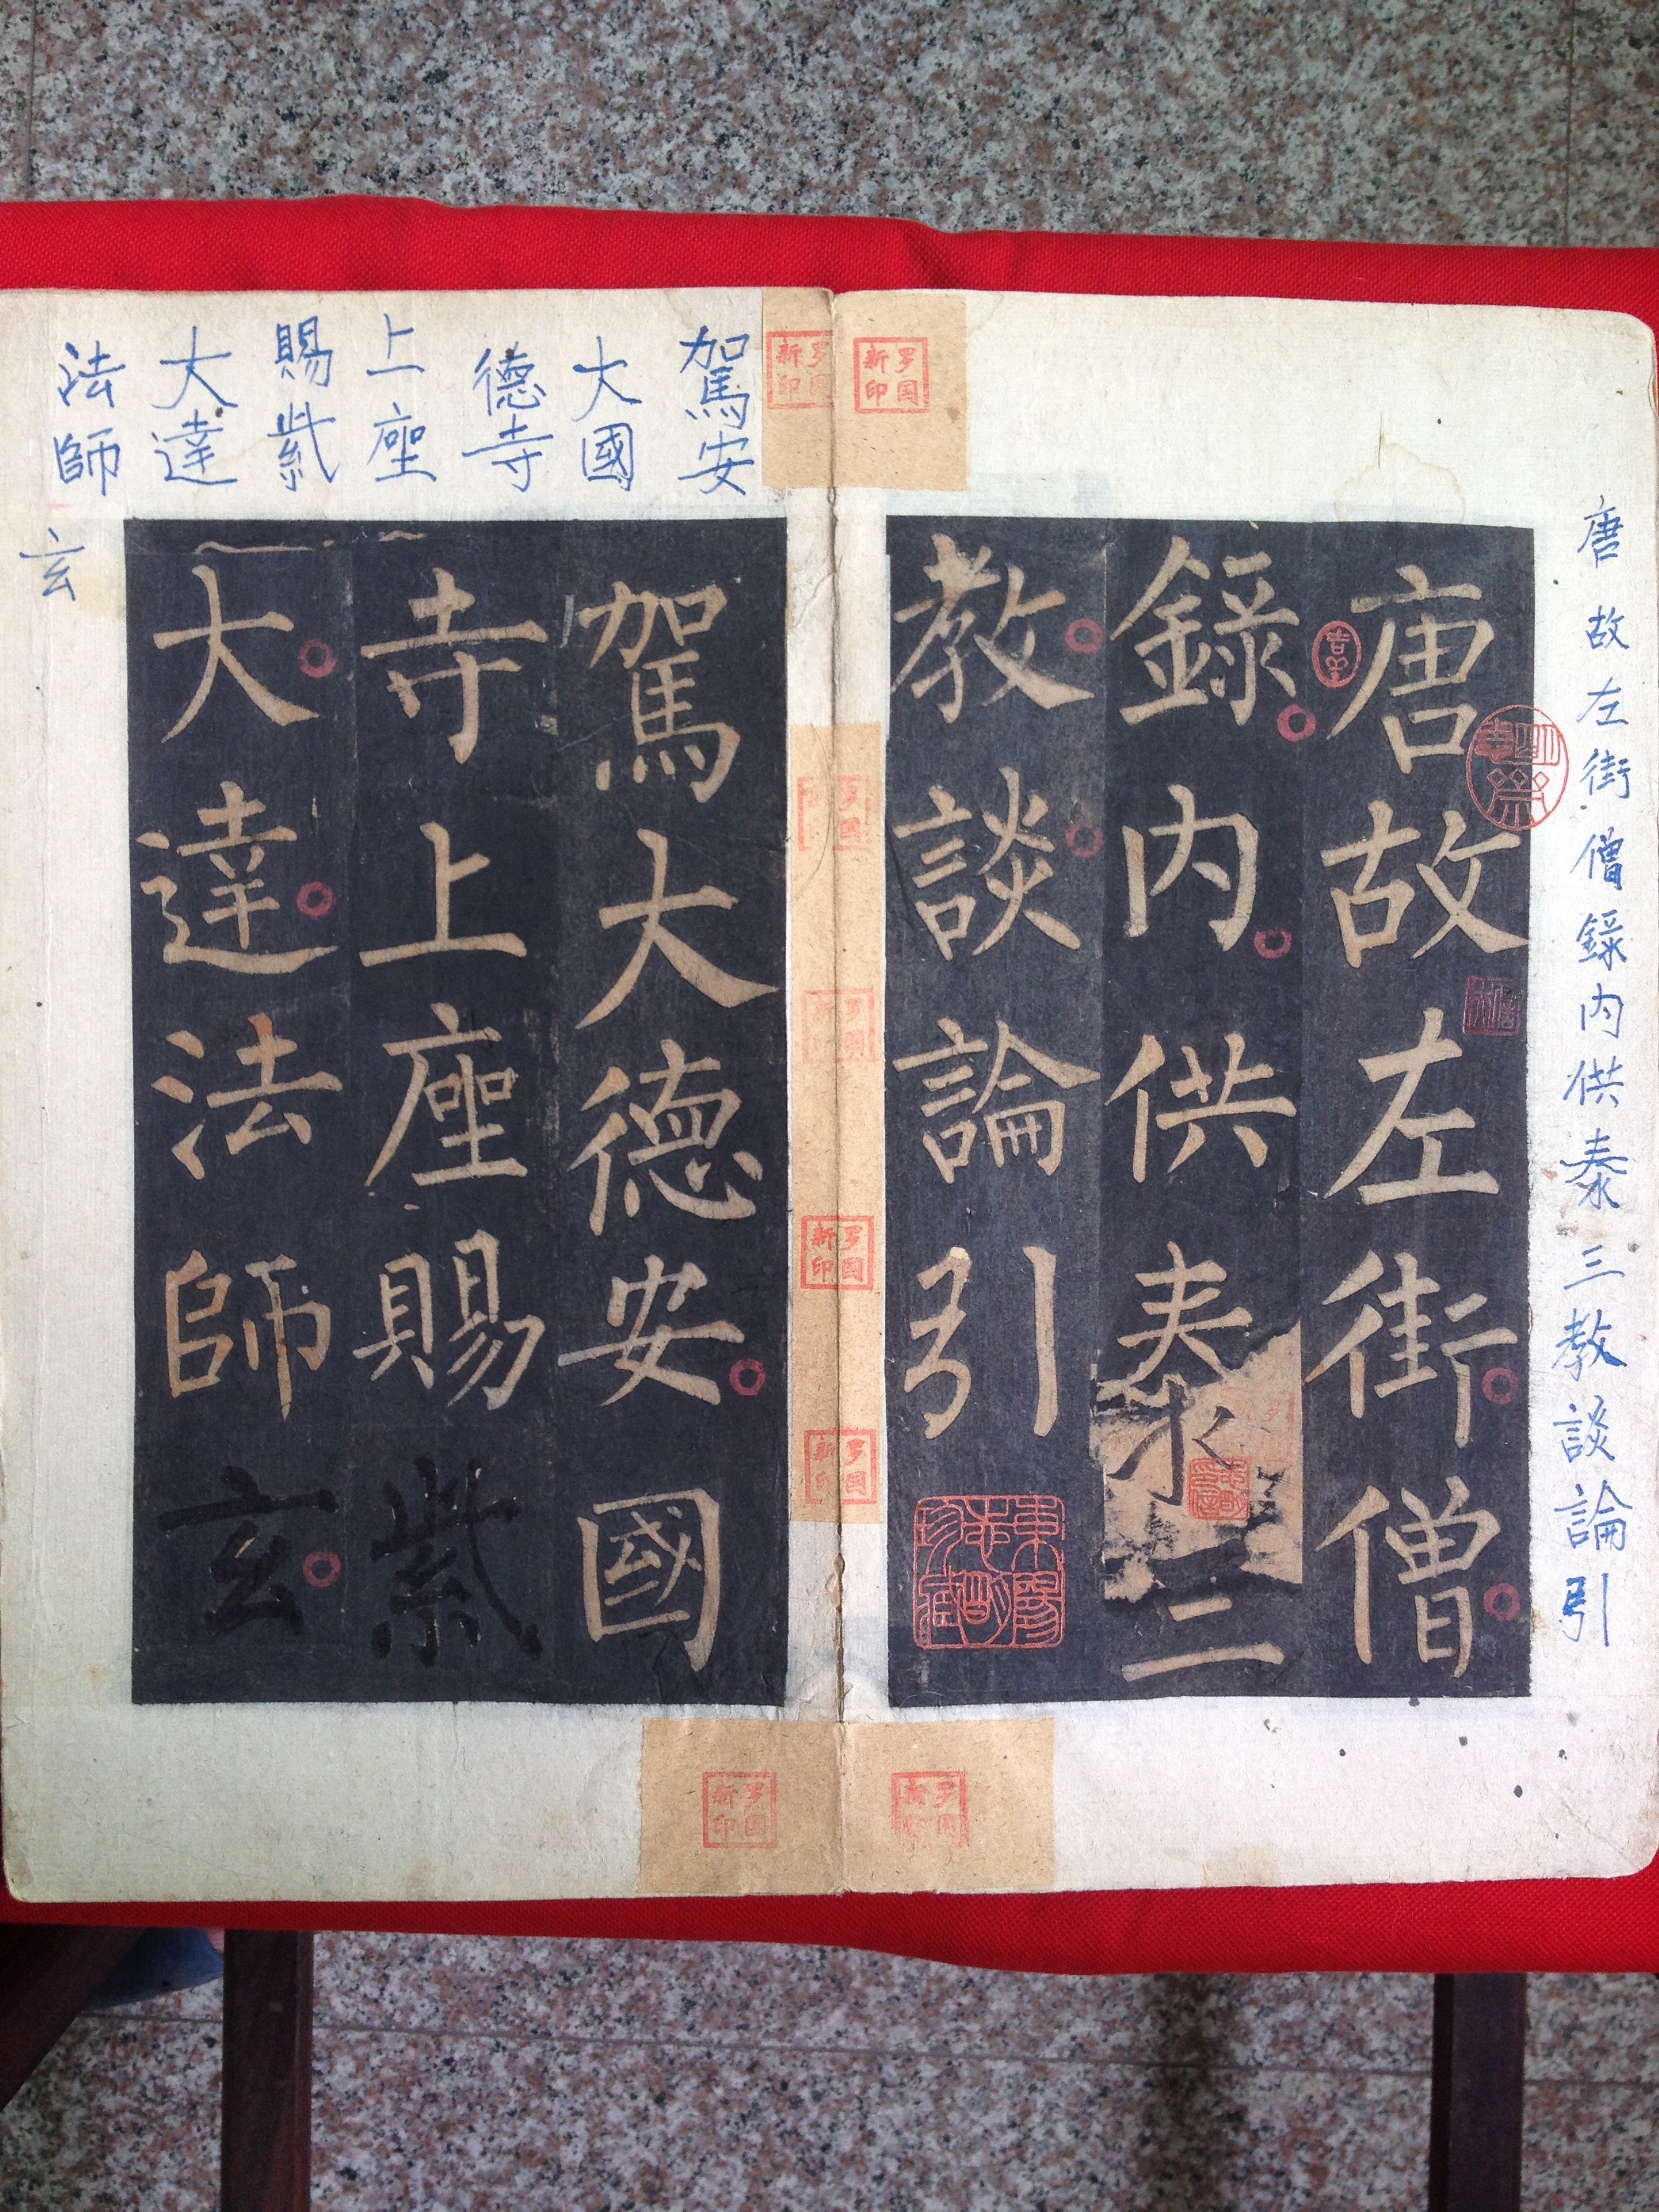 唐故左街僧
錄內供奉三
教談論引
駕大德安國
寺上座賜紫
大達法師玄
唐故左街僧錄内供奉三教談論引
駕安
大國
德寺
上座
賜紫
大達
法師
玄
罗国
新印
罗国
新印
罗国
新印
罗国
新印
罗国
新印
罗国
新印